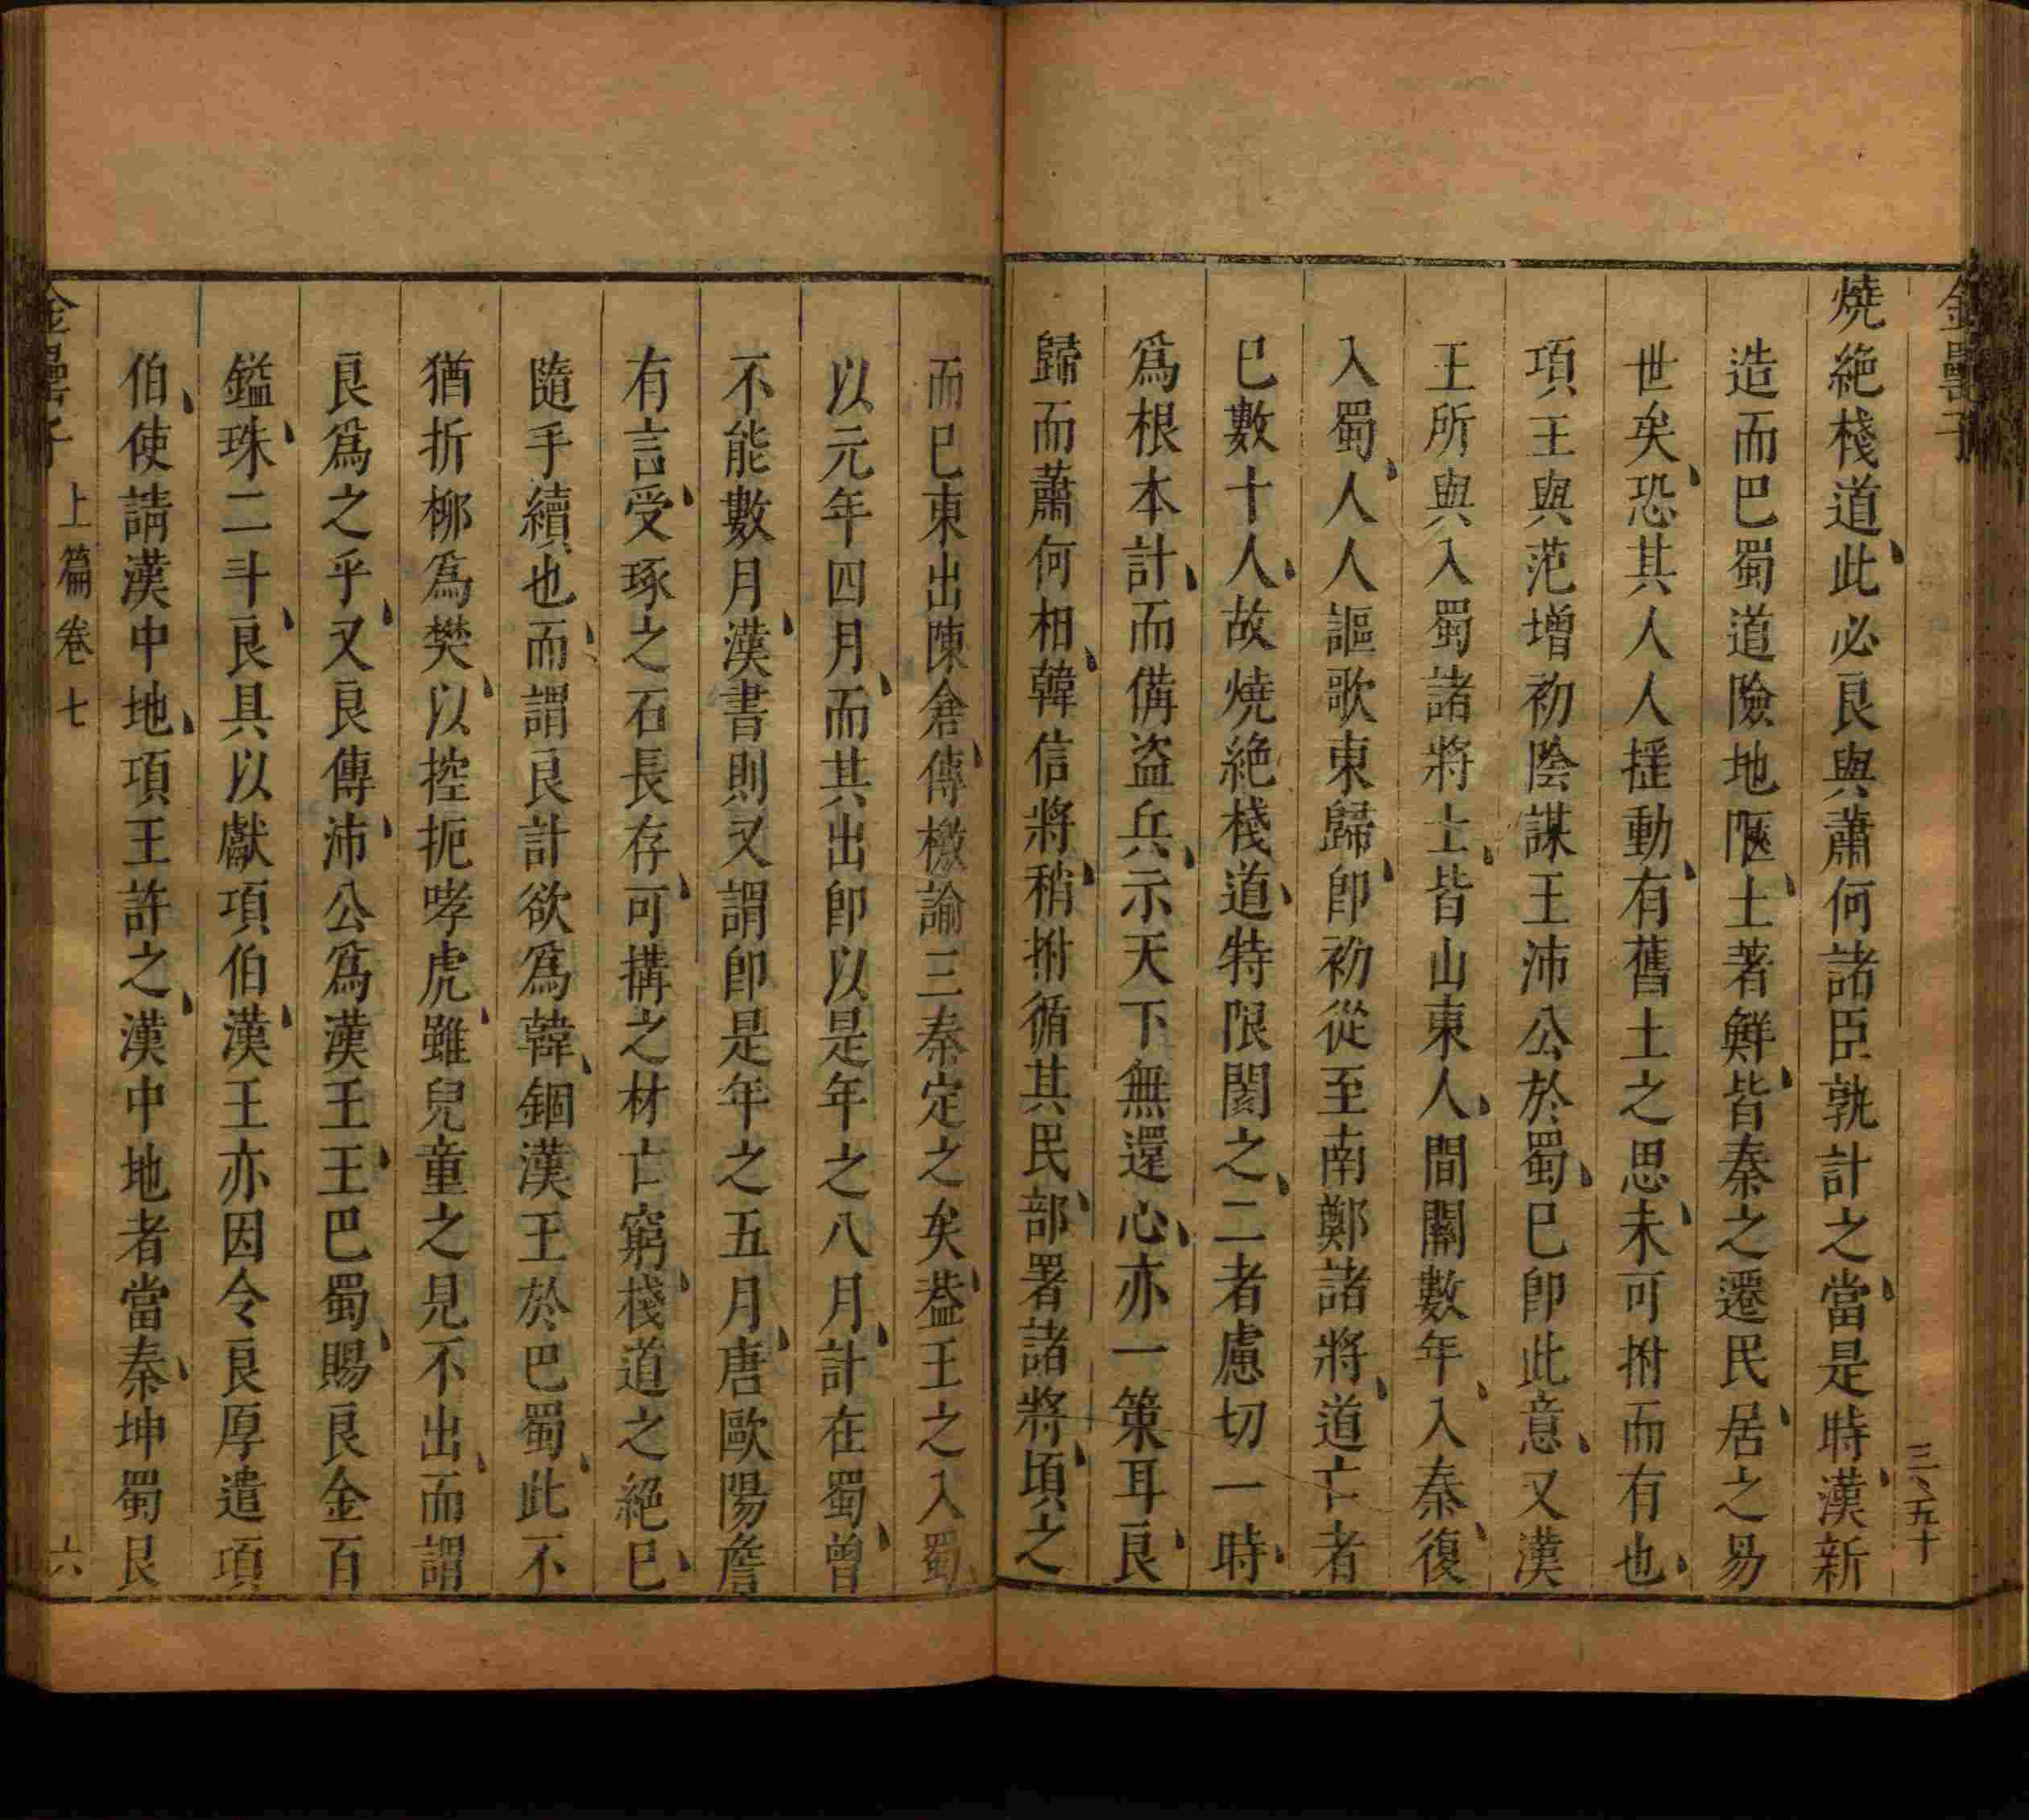 金罍子
三、五十
燒絶棧道、此必良與蕭何諸臣孰計之、當是時、漢新
造而巴蜀道險地陋、土著鮮、皆秦之遷民、居之易
世矣、恐其人人揺動、有舊土之思、未可拊而有也、
項王與范增初陰謀王沛公於蜀、巳卽此意、又漢
王所與入蜀諸將士、皆山東人、間關數年、入秦、復
入蜀、人人謳歌東歸、卽初從至南鄭諸將、道亡者
巳數十人、故燒絶棧道、特限閡之、二者慮切一時、
爲根本計、而備盜兵、示天下無還心、亦一策耳、良
歸而蕭何相、韓信將、稍拊循其民、部署諸將、頃之
而巳東出陳倉、傳檄諭三秦定之矣、葢王之入蜀、
以元年四月、而其出卽以是年之八月、計在蜀、曾
不能數月、漢書則又謂卽是年之五月、唐歐陽詹
有言、受琢之石長存、可搆之材亡窮、棧道之絶巳、
隨手續也、而謂良計欲爲韓、錮漢王於巴蜀、此不
猶折柳爲樊、以控扼哮虎、雖兒童之見不出、而謂
良爲之乎、又良傳、沛公爲漢王、王巴蜀、賜良金百
鎰、珠二斗、良具以獻項伯、漢王亦因令良厚遣項
伯、使請漢中地、項王許之、漢中地者當秦、坤蜀艮
金罍子
上篇卷七
六